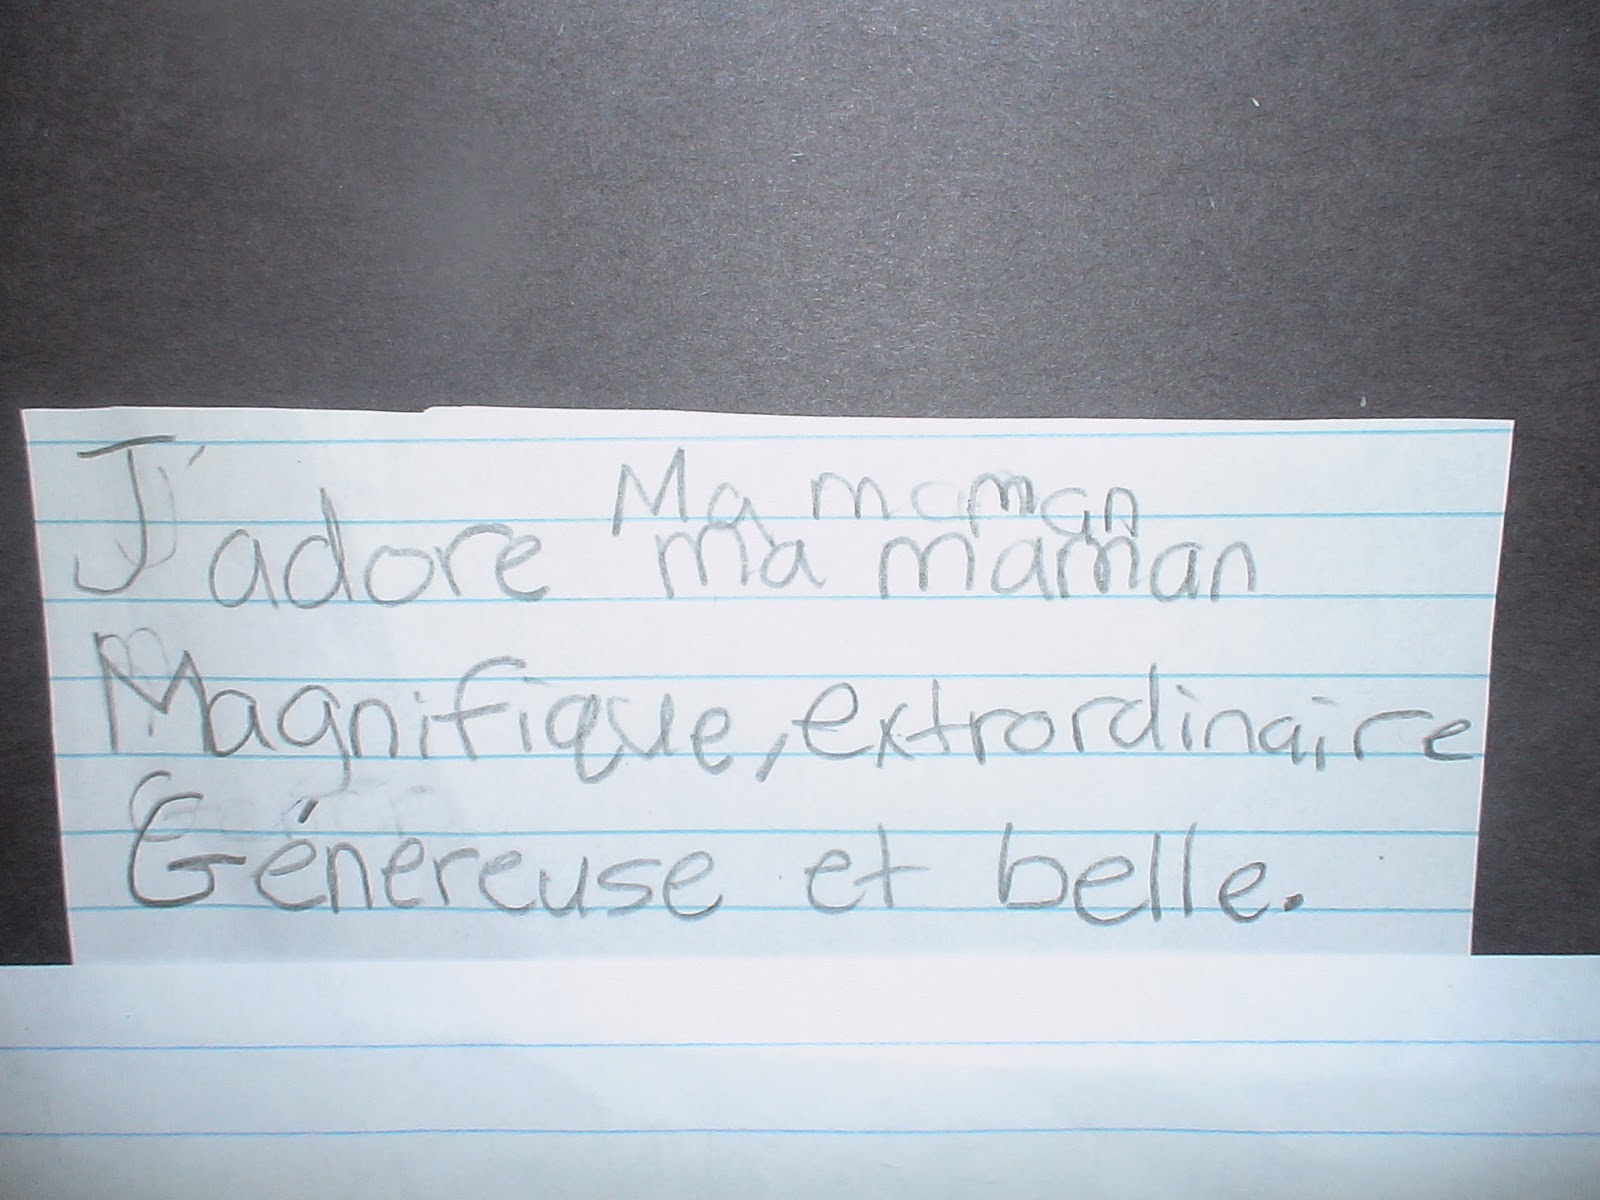 Ma maman
J'adore ma maman
Magnifique, extrordinaire
Génereuse et belle.